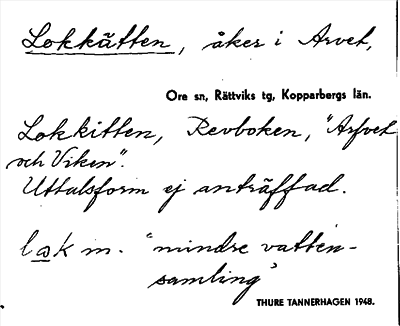 Lokkätten, åker i Arvet,
Ore sn, Rättviks tg, Kopparbergs län.
Lokkitten, Revboken, "Arfvet
och Viken".
Uttalsform ej anträffad.
lak m. "mindre vatten-
samling"
THURE TANNERHAGEN 1948.